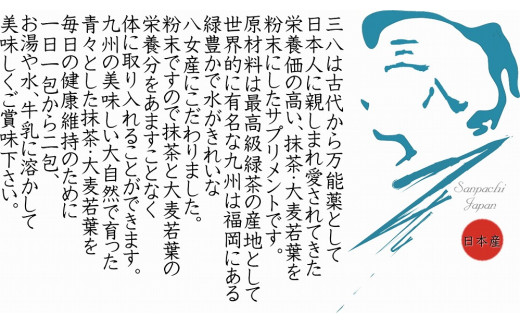 三八
Sanpachi
Japan
日本産
三八は古代から万能薬として
日本人に親しまれ愛されてきた
栄養価の高い、抹茶・大麦若葉を
粉末にしたサプリメントです。
原材料は最高級緑茶の産地として
世界的に有名な九州は福岡にある
緑豊かで水がきれいな
八女産にこだわりました。
粉末ですので抹茶と大麦若葉の
栄養分をあますことなく
体に取り入れることができます。
九州の美味しい大自然で育った
青々とした抹茶・大麦若葉を
毎日の健康維持のために
一日一包から二包、
お湯や水、牛乳に溶かして
美味しくご賞味下さい。